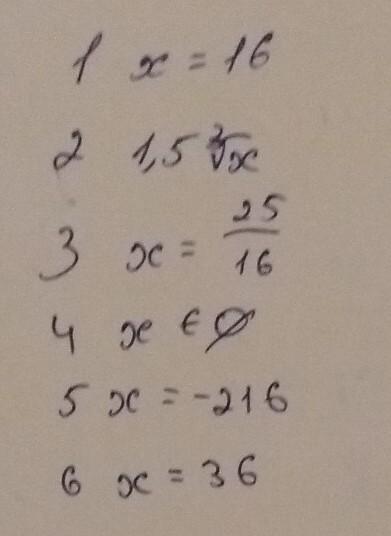 1 x = 16
2 1,5 ∛x
3 x = 25/16
4 x ∈ ∅
5 x = -216
6 x = 36